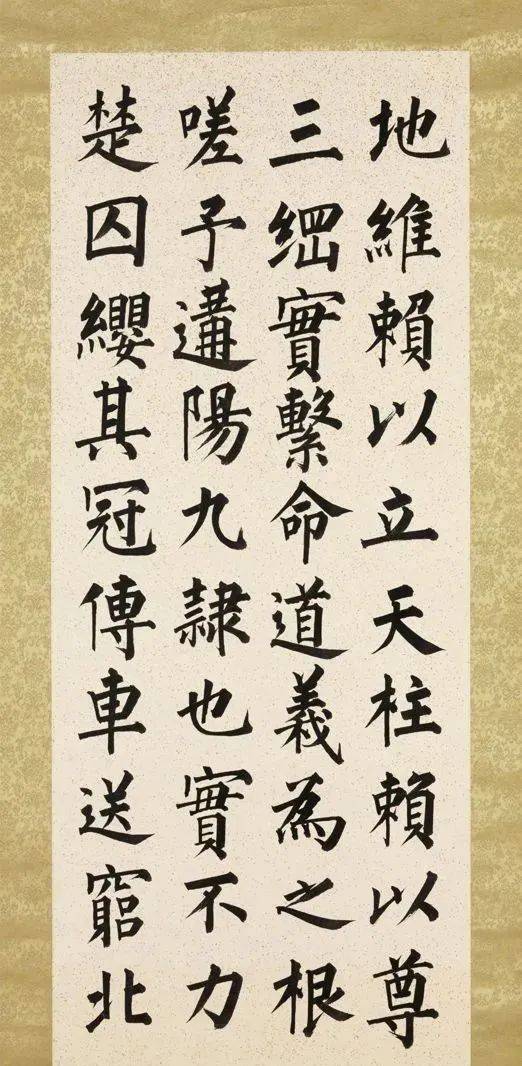 地維賴以立天柱賴以尊
三綱實繫命道義為之根
嗟予遘陽九隸也實不力
楚囚纓其冠傳車送窮北